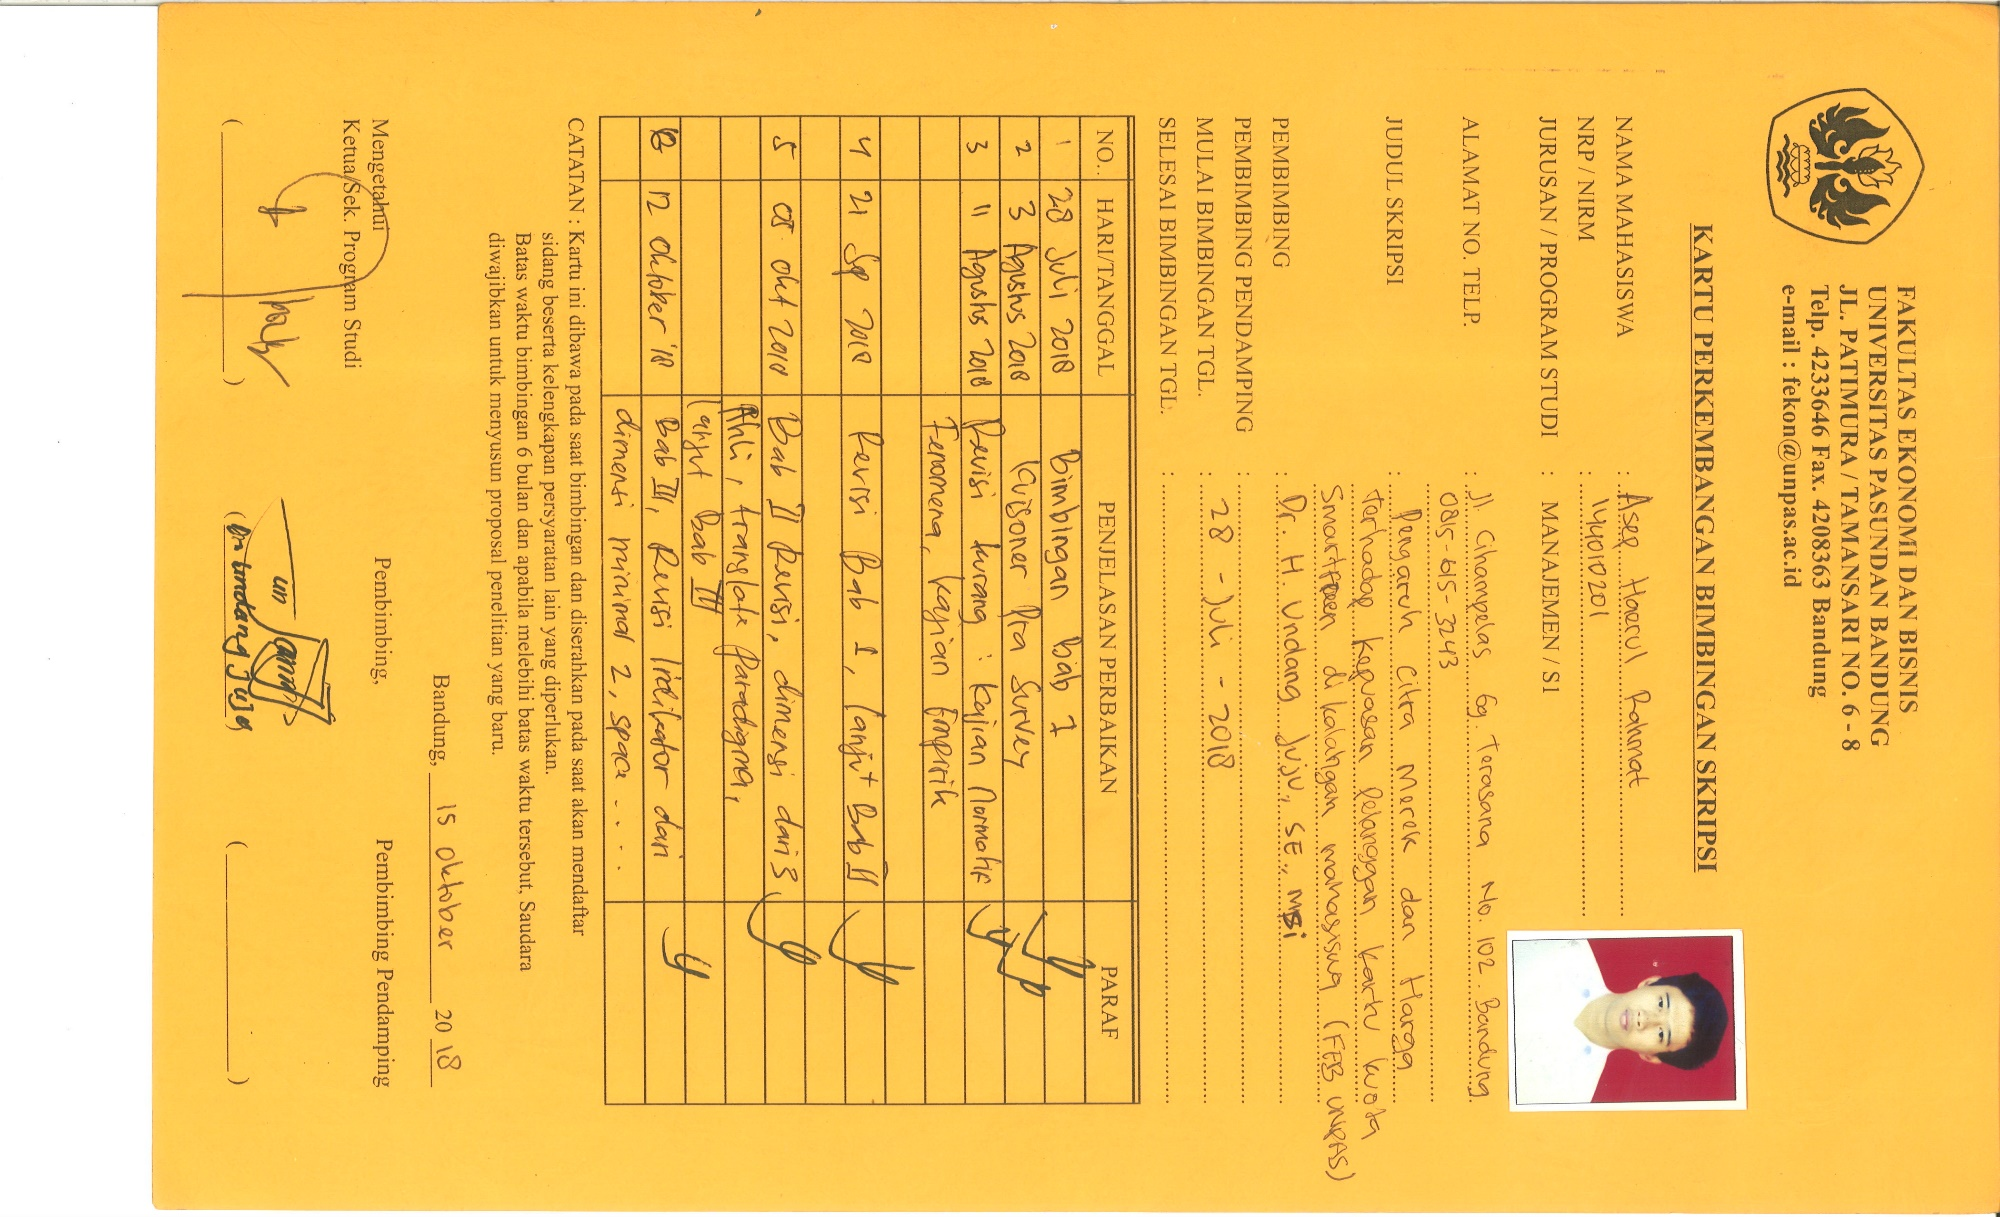 FAKULTAS EKONOMI DAN BISNIS
UNIVERSITAS PASUNDAN BANDUNG
JL. PATIMURA / TAMANSARI NO. 6 - 8
Telp. 4233646 Fax. 4208363 Bandung
e-mail : fekon@unpas.ac.id
KARTU PERKEMBANGAN BIMBINGAN SKRIPSI
NAMA MAHASISWA : Asep Haerul Rahmat
NRP / NIRM : 144010201
JURUSAN / PROGRAM STUDI : MANAJEMEN / S1
ALAMAT NO. TELP. : Jl. Cihampelas Gg. Terasana No. 102. Bandung
0815-615-3243
JUDUL SKRIPSI : Pengaruh Citra Merek dan Harga
terhadap Kepuasan pelanggan kartu kuota
Smartfren di kalangan mahasiswa (FEB UNPAS)
PEMBIMBING : Dr. H. Undang Juju, SE., MSi
PEMBIMBING PENDAMPING :
MULAI BIMBINGAN TGL. : 28 - Juli - 2018
SELESAI BIMBINGAN TGL. :
NO. HARI/TANGGAL PENJELASAN PERBAIKAN PARAF
1 28 Juli 2018 Bimbingan Bab 1
2 3 Agustus 2018 Kuisoner Pra Survey
3 11 Agustus 2018 Revisi kurang : Kajian Normatif
Fenomena, Kajian Empirik
4 21 Sep 2018 Revisi Bab I, lanjut Bab II
5 05 okt 2018 Bab II Revisi, dimensi dari 3
Ahli, translate Paradigma,
lanjut Bab III
6 12 oktober '18 Bab III, Revisi Indikator dari
dimensi minimal 2, space . . . .
CATATAN : Kartu ini dibawa pada saat bimbingan dan diserahkan pada saat akan mendaftar
sidang beserta kelengkapan persyaratan lain yang diperlukan.
Batas waktu bimbingan 6 bulan dan apabila melebihi batas waktu tersebut, Saudara
diwajibkan untuk menyusun proposal penelitian yang baru.
Bandung, 15 oktober 2018
Mengetahui
Ketua/Sek. Program Studi
Pembimbing,
Pembimbing Pendamping
( )
(Dr. Undang Juju)
( )